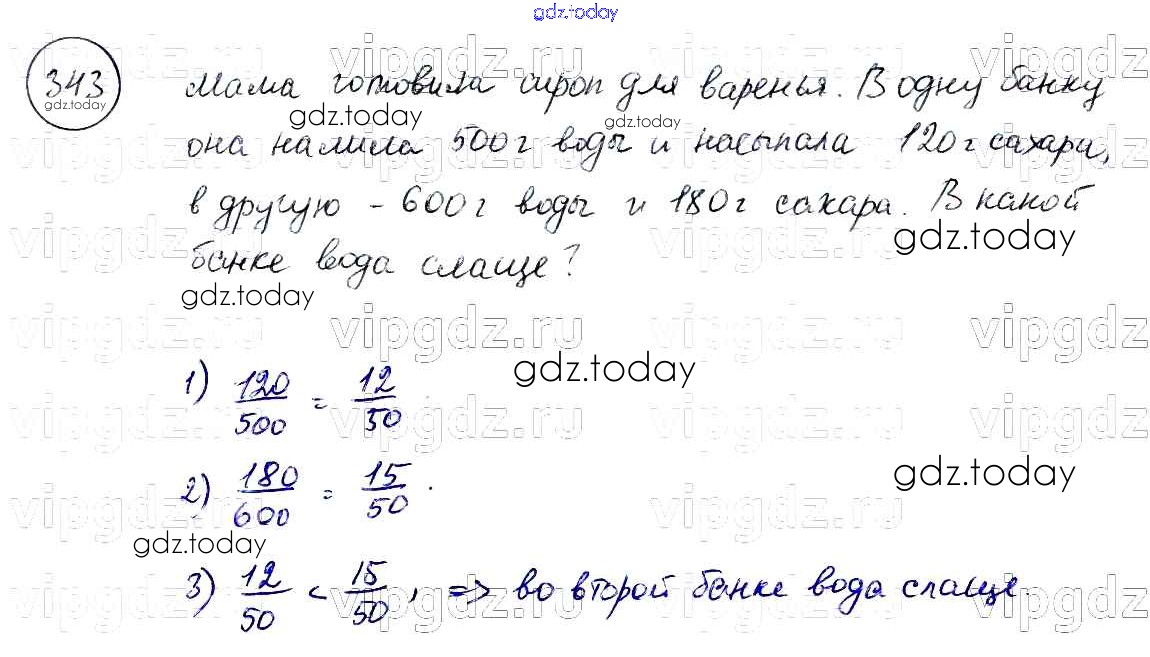 gdz.today
343 Мама готовила сироп для варенья. В одну банку
gdz.today
она налила 500 г воды и насыпала 120 г сахара,
в другую – 600 г воды и 180 г сахара. В какой
банке вода слаще?
gdz.today
gdz.today
gdz.today
gdz.today
vipgdz.ru
1) 120/500 = 12/50
gdz.today
2) 180/600 = 15/50.
gdz.today
gdz.today
3) 12/50 < 15/50, => во второй банке вода слаще.